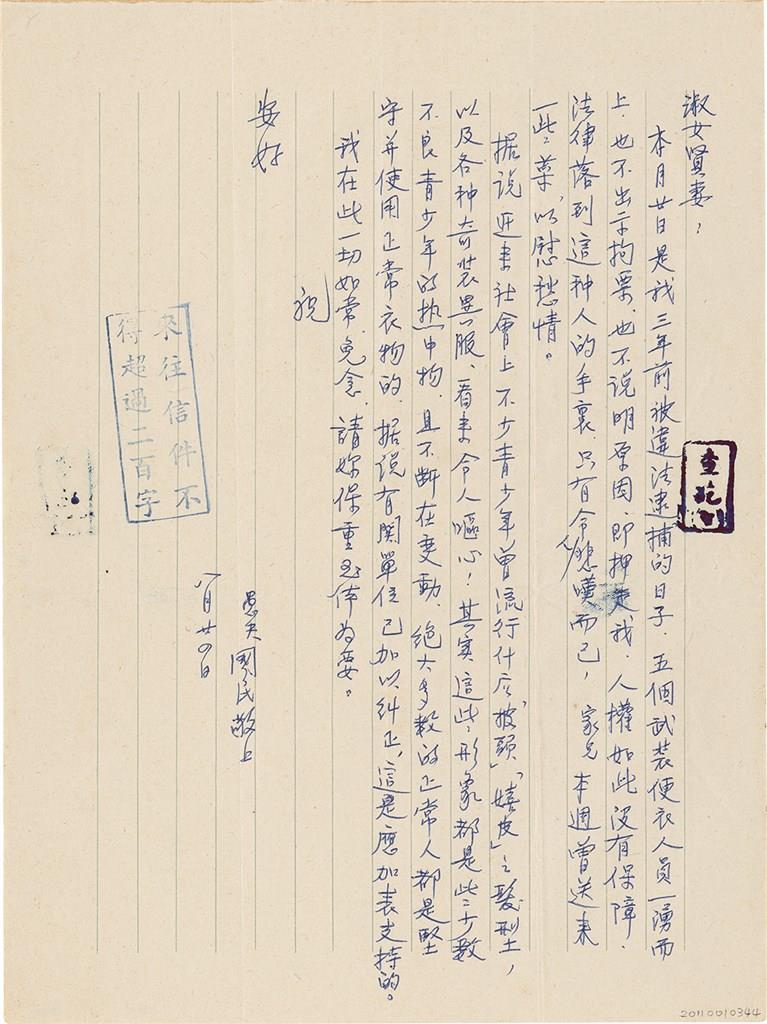 淑女賢妻：
本月廿日是我三年前被違法逮捕的日子．五個武装便衣人員一湧而
上．也不出示拘票．也不说明原因．即押走我．人權如此没有保障．
法律落到這种人的手裏．只有令人悲嘆而已，家兄本週曾送来
一些菜，以慰愁情。
据说近来社會上不少青少年曾流行什么「披頭」「嬉皮」之髮型，
以及各种奇装異服、看来令人嘔心！其实這些形象都是些少数
不良青少年的热中物．且不断在变動．绝大多数的正常人都是堅
守并使用正常衣物的．据说有関單位已加以纠正，這是應加表支持的。
我在此一切如常．免念．請妳保重玉体为要。
祝
安好
愚夫國民敬上
八月廿四日
查訖
來往信件不
得超過二百字
20110010344